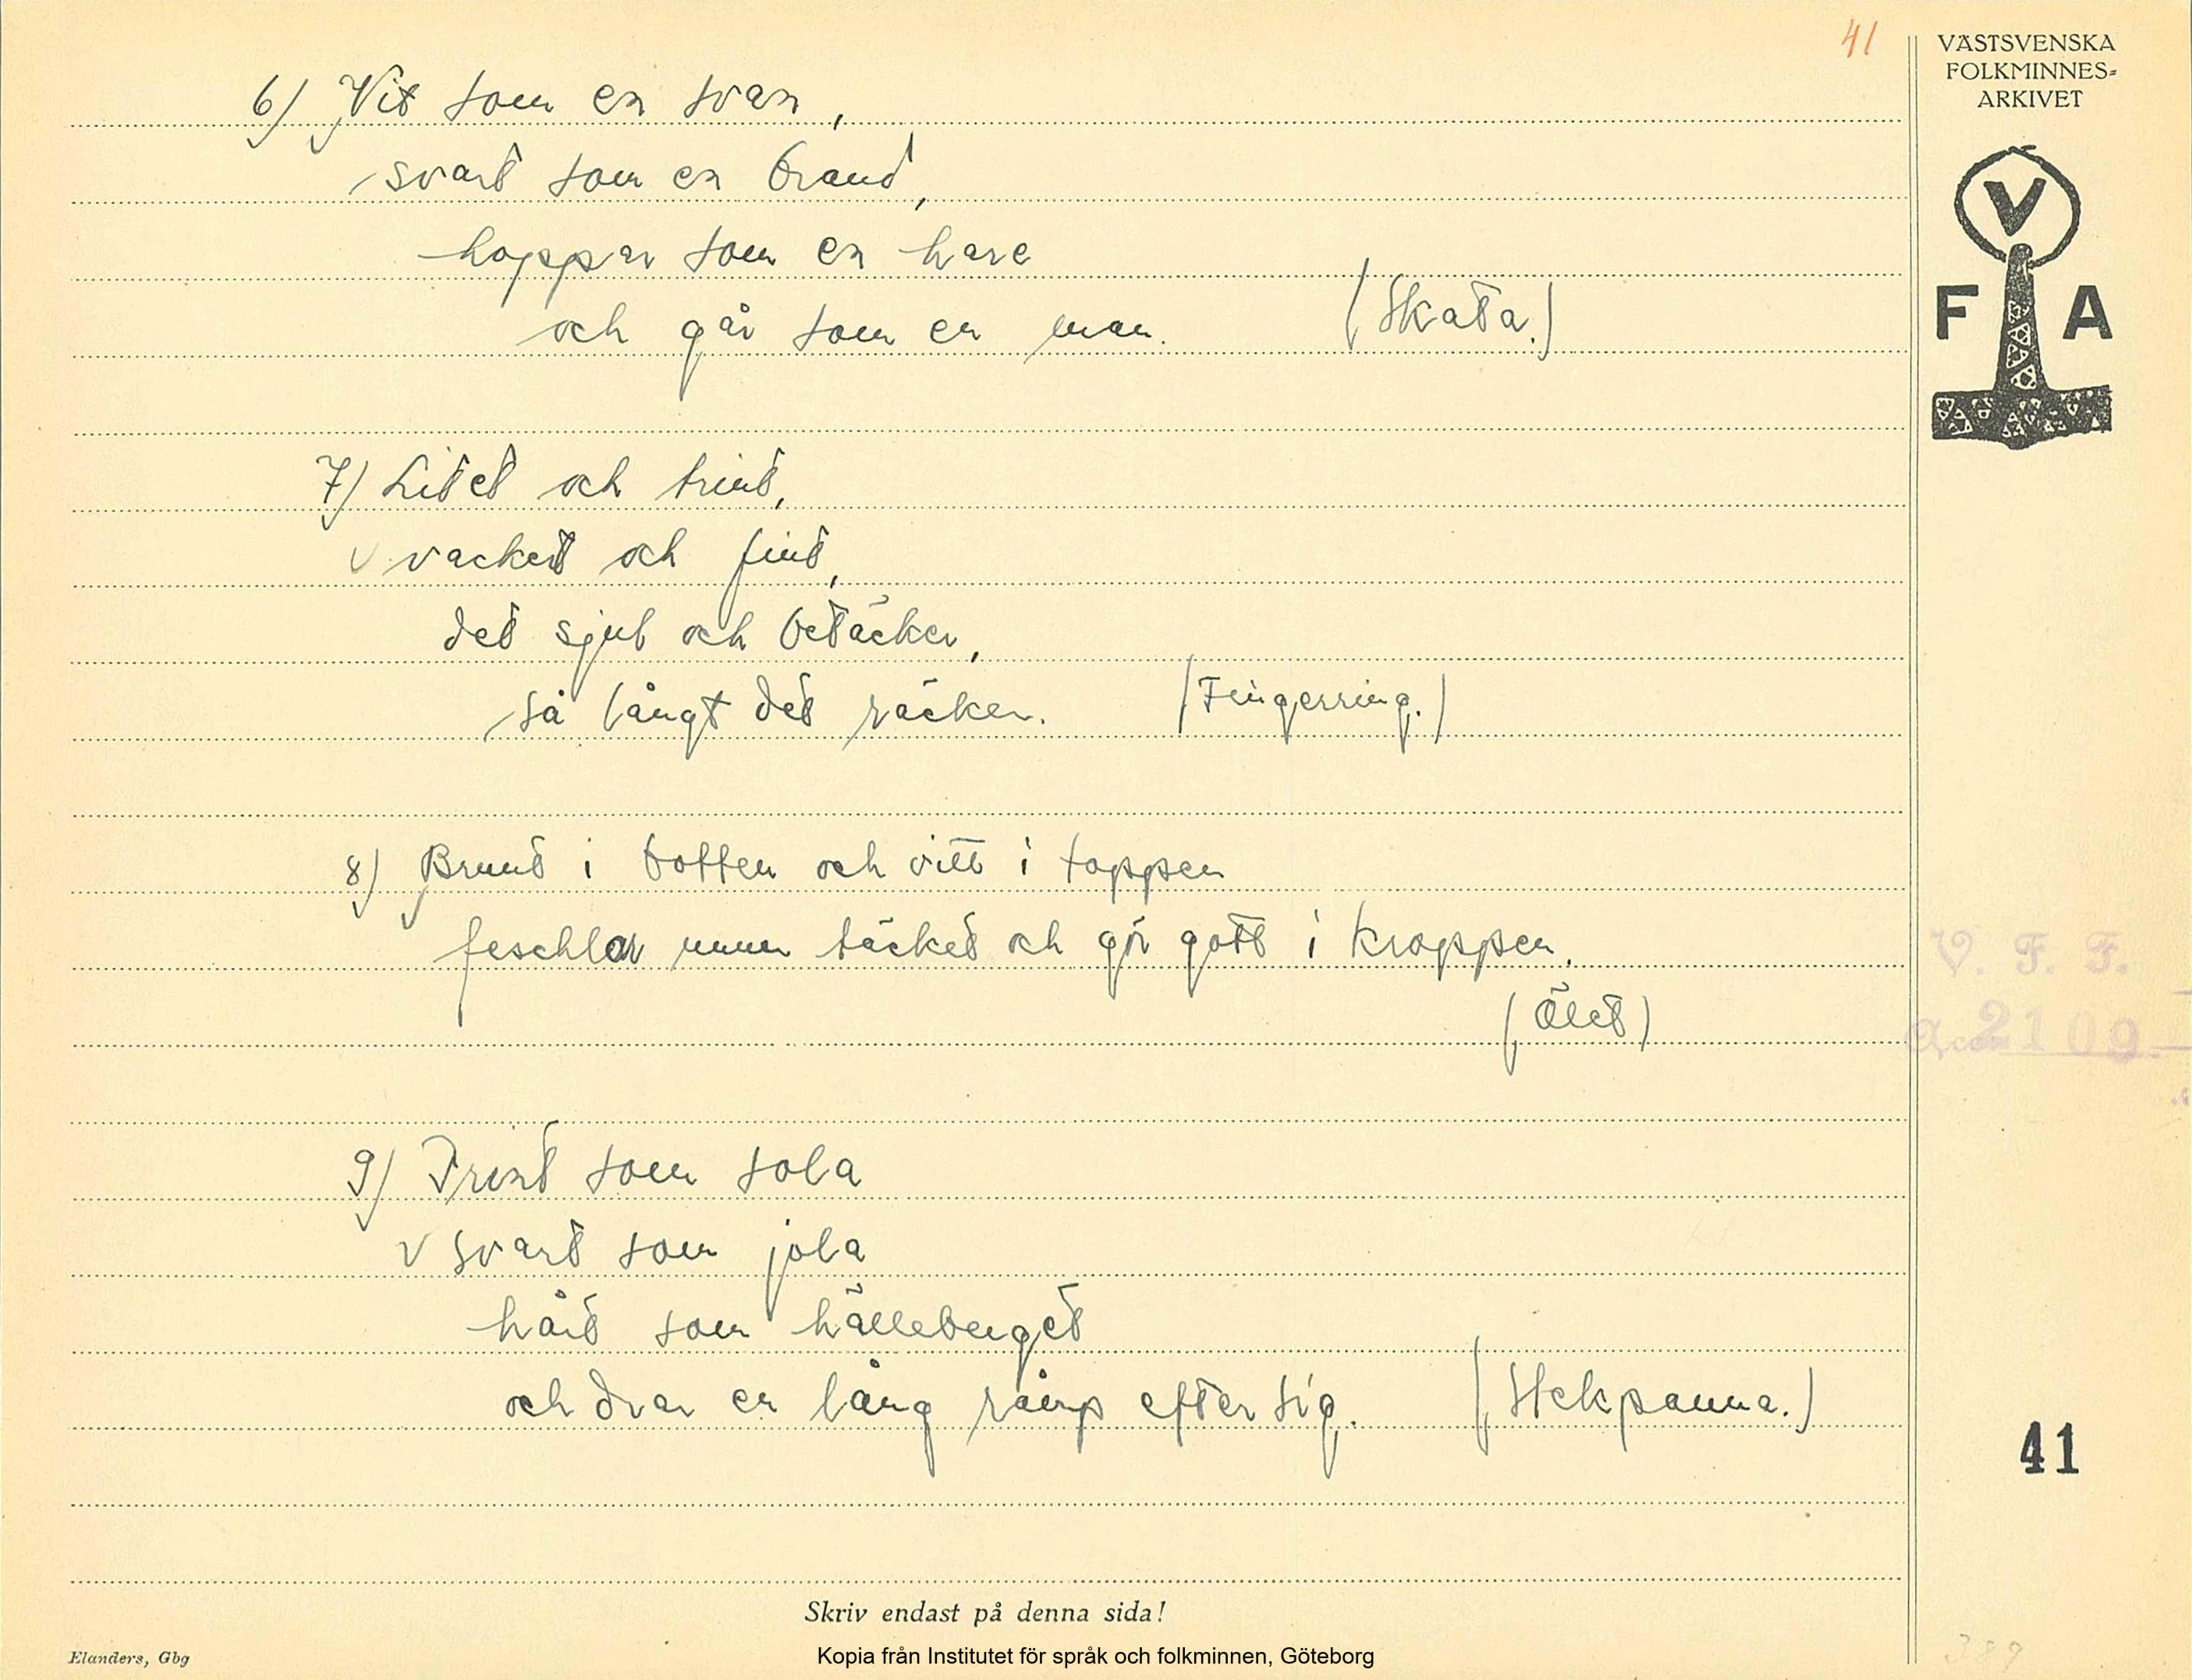 41
VÄSTSVENSKA
FOLKMINNES=
ARKIVET
V
F A
6) Vit som en svan,
svart som en brand,
hoppar som en hare
och går som en man. (Skata.)
7) Litet och trint,
vackert och fint,
det sjul och betäcker,
så långt det räcker. (Fingerring.)
8) Brunt i botten och vitt i toppen
täcket och gör gott i kroppen.
(Ölet)
9) Trint som sola
svart som jola
hårt som hälleberget
och drar en lång rämp efter sig. (Stekpanna.)
V. F. F.
Accn 2109
41
Skriv endast på denna sida!
Elanders, Gbg
Kopia från Institutet för språk och folkminnen, Göteborg
389